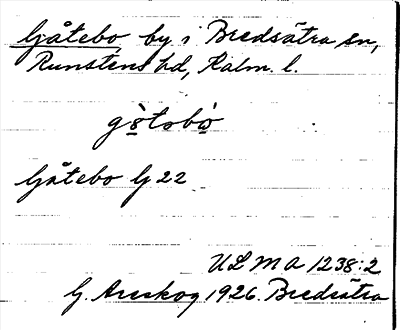 Gåtebo by i Bredsätra sn,
Runstens hd, Kalm. l.
gò̤tobὼ̤
Gåtebo G 22
ULMA 1238:2
G. Areskog 1926. Bredsätra